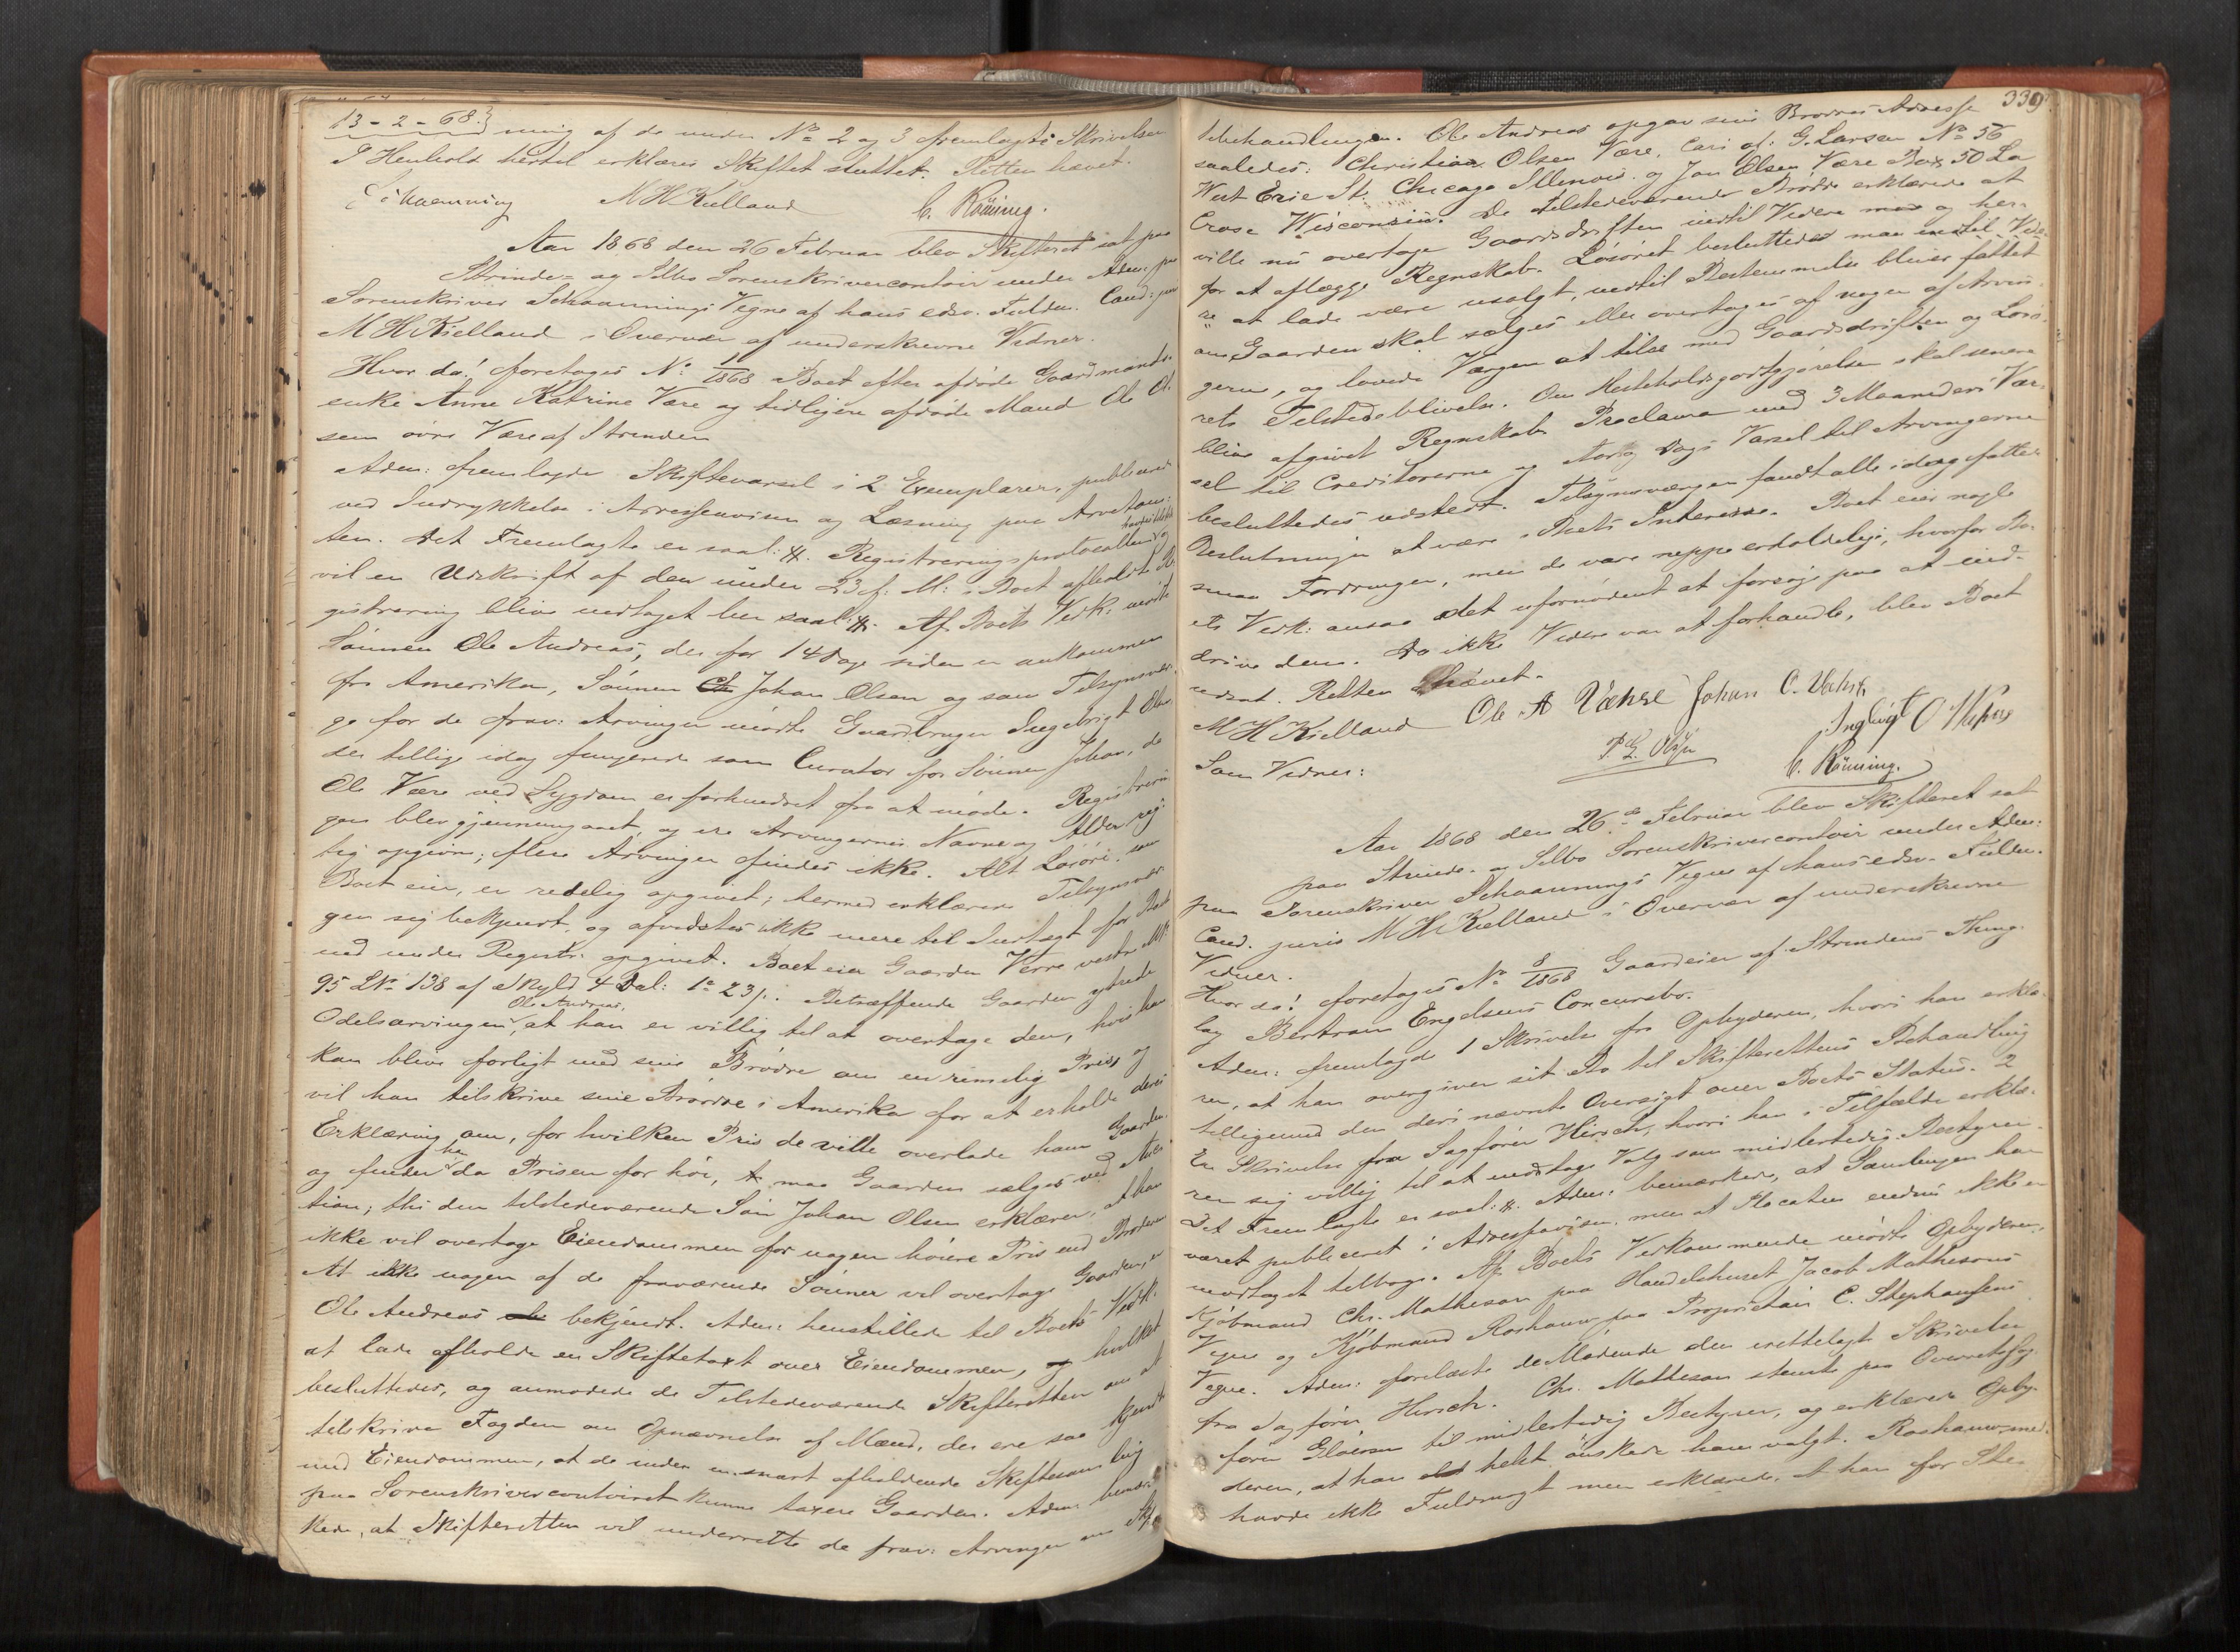 13-2-68.} ning af de under No 2 og 3 fremlagte Skrivelser
I Henhold hertil erklæres Skiftet sluttet. Retten hævet.
Schaanning M H Kielland C. Rönning.
Aar 1868 den 26 Februar blev Skifteret sat paa
Strinde- og Selbo Sorenskrivercontoir under Adm: for
Sorenskriver Schaannings Vegne af hans edsv. Fuldm. Cand: juris
M H Kielland i Overvær af underskrevne Vidner.
Hvor da! foretoges No: 1/1868 Boet efter afdøde Gaardmands-
enke Anne Katrine Være og tidligere afdøde Mand Ole Ol-
sen övre Være af Strinden
Adm: fremlagde Skiftevarsel i 2 Exemplarer, publiceret
ved Indrykkelse i Adresseavisen og Læsning paa Arvetom-
ten. Det Fremlagte er saal: #. Registreringsprotocollen
vil en Udskrift af den under 23 f: M: i Boet afholdt Re-
gistrering blive indtaget her saal: #. Af Boets Vedk: mödte
Sönnen Ole Andreas, der for 14 Dage siden er ankommen
fra Amerika, Sönnen Johan Olsen og som Tilsynsvær-
ge for de frav: Arvinger mödte Gaardbruger Ingebrigt Olsen
der tillige idag fungerede som Curator for Sönnen Johan, da
Ole Være ved Sygdom er forhindret fra at möde. Registrerin-
gen blev gjennemgaaet, og ere Arvingernes Navne og Alder rig-
tig opgivne; flere Arvinger findes ikke. Alt Lösöre, som
Boet eier, er redelig opgivet; hermed erklærede Tilsynsvær-
gen sig bekjendt, og afvidstes ikke mere til Indtægt for Boet
end under Registr: opgivet. Boet eier Gaarden Verre vestre MNo
95 LNo 138 af Skyld 4 Dal: 1 " 23 /. Betræffende Gaarden ytrede
Odelsarvingen Ole Andreas, at han er villig til at overtage den, hvis han
kan blive forligt med sine Brödre om en rimelig Pris, og
vil han tilskrive sine Brödre i Amerika for at erholde deres
Erklæring om, for hvilken Pris de ville overlade ham Gaarden
og finder han da Prisen for höi, maa Gaarden sælges ved Auc-
tion; thi den tilstedeværende Sön Johan Olsen erklærer, at han
ikke vil overtage Eiendommen for nogen höiere Pris end Broderen
At ikke nogen af de fraværende Sönner vil overtage Gaarden, er
Ole Andreas bekjendt. Adm: henstillede til Boets Vedk:
at lade afholde en Skiftetaxt over Eiendommen, hvilket
besluttedes, og anmodede de Tilstedeværende Skifteretten om at
tilskrive Fogden om Opnævnelse af Mænd, der ere saa kjendte
med Eiendommen, at de under en snart afholdende Skiftesamling
paa Sorenskrivercontoiret kunne taxere Gaarden. Adm: bemær-
kede, at Skifteretten vil underrette de frav: Arvinger om Skif-
339
tebehandlingen. Ole Andreas opgav sine Brödres Adresse
saaledes: Christian Olsen Være, Cari af: G. Larsen No 56
West Erie St. Chicago Illinois. og Jon Olsen Være Box 50 La
Crose Wisconsin. De tilstedeværende Brödre erklærede at
ville nu overtage Gaardsdriften indtil Videre mod og her-
for at aflægge Regnskab. Lösöret besluttedes man indtil Vide-
re at lade være usolgt, indtil Bestemmelse bliver fattet
om Gaarden skal sælges eller overtages af nogen af Arvin-
gerne, og lovede Værgen at tilse med Gaardsdriften og Lösö-
rets Tilstedeblivelse. Om Husholdsgodtgjörelse skal senere
blive afgivet Regnskab. Proclama med 3 Maaneders Var-
sel til Creditorerne og Dags Varsel til Arvingerne
besluttedes udstedt. Tilsynsværgen fandt alle idag fattede
Beslutninger at være i Boets Interesse. Boet eier nogle
smaa Fordringer, men de vare neppe erholdelige, hvorfor Bo-
ets Vedk: ansaa det ufornödent at forsöge paa at ind-
drive dem. Da ikke Videre var at forhandle, blev Boet
udsat. Retten hævet.
M H Kielland Ole A Væhre Johan O. Væhre
Som Vidner:
C. Rönning.
Aar 1868 den 26de Februar blev Skifteret sat
paa Strinde- og Selbo Sorenskrivercontoir under Adm:
for Sorenskriver Schaannings Vegne af hans edsv. Fuldm.
Cand. juris M H Kielland i Overvær af underskrevne
Vidner.
Hvor da! foretoges No 8/1868 Gaardeier af Strindens Thing-
lag Bertram Engelsens Concursbo.
Adm: fremlagde 1 Skrivelse fra Opbyderen, hvori han erklæ-
rer, at han overgiver sit Bo til Skifterettens Behandling
tilligemed den deri nævnte Oversigt over Boets Status. 2
En Skrivelse fra Sagförer Hirsch, hvori han i Tilfælde erklæ-
rer sig villig til at modtage Valg som midlertidig Bestyrer.
Det Fremlagte er saal: #. Adm: bemærkede, at Samlingen har
været publiceret i Adresseavisen, men at Placaten endnu ikke er
modtaget tilbage. Af Boets Vedkommende mödte Opbyderen,
Kjöbmand Chr. Matheson paa Handelshuset Jacob Mathesons
Vegne og Kjöbmand Roshauw paa Proprietair C. Stephansens
Vegne. Adm: forelæste de Mödende den irettelagte Skrivelse
fra Sagförer Hirsch. Chr. Matheson stemte paa Overretssag-
förer til midlertidig Bestyrer, og erklærede Opby-
deren, at han helst önskede ham valgt. Roshauw med-
havde ikke Fuldmagt men erklærede, at han for Ste-